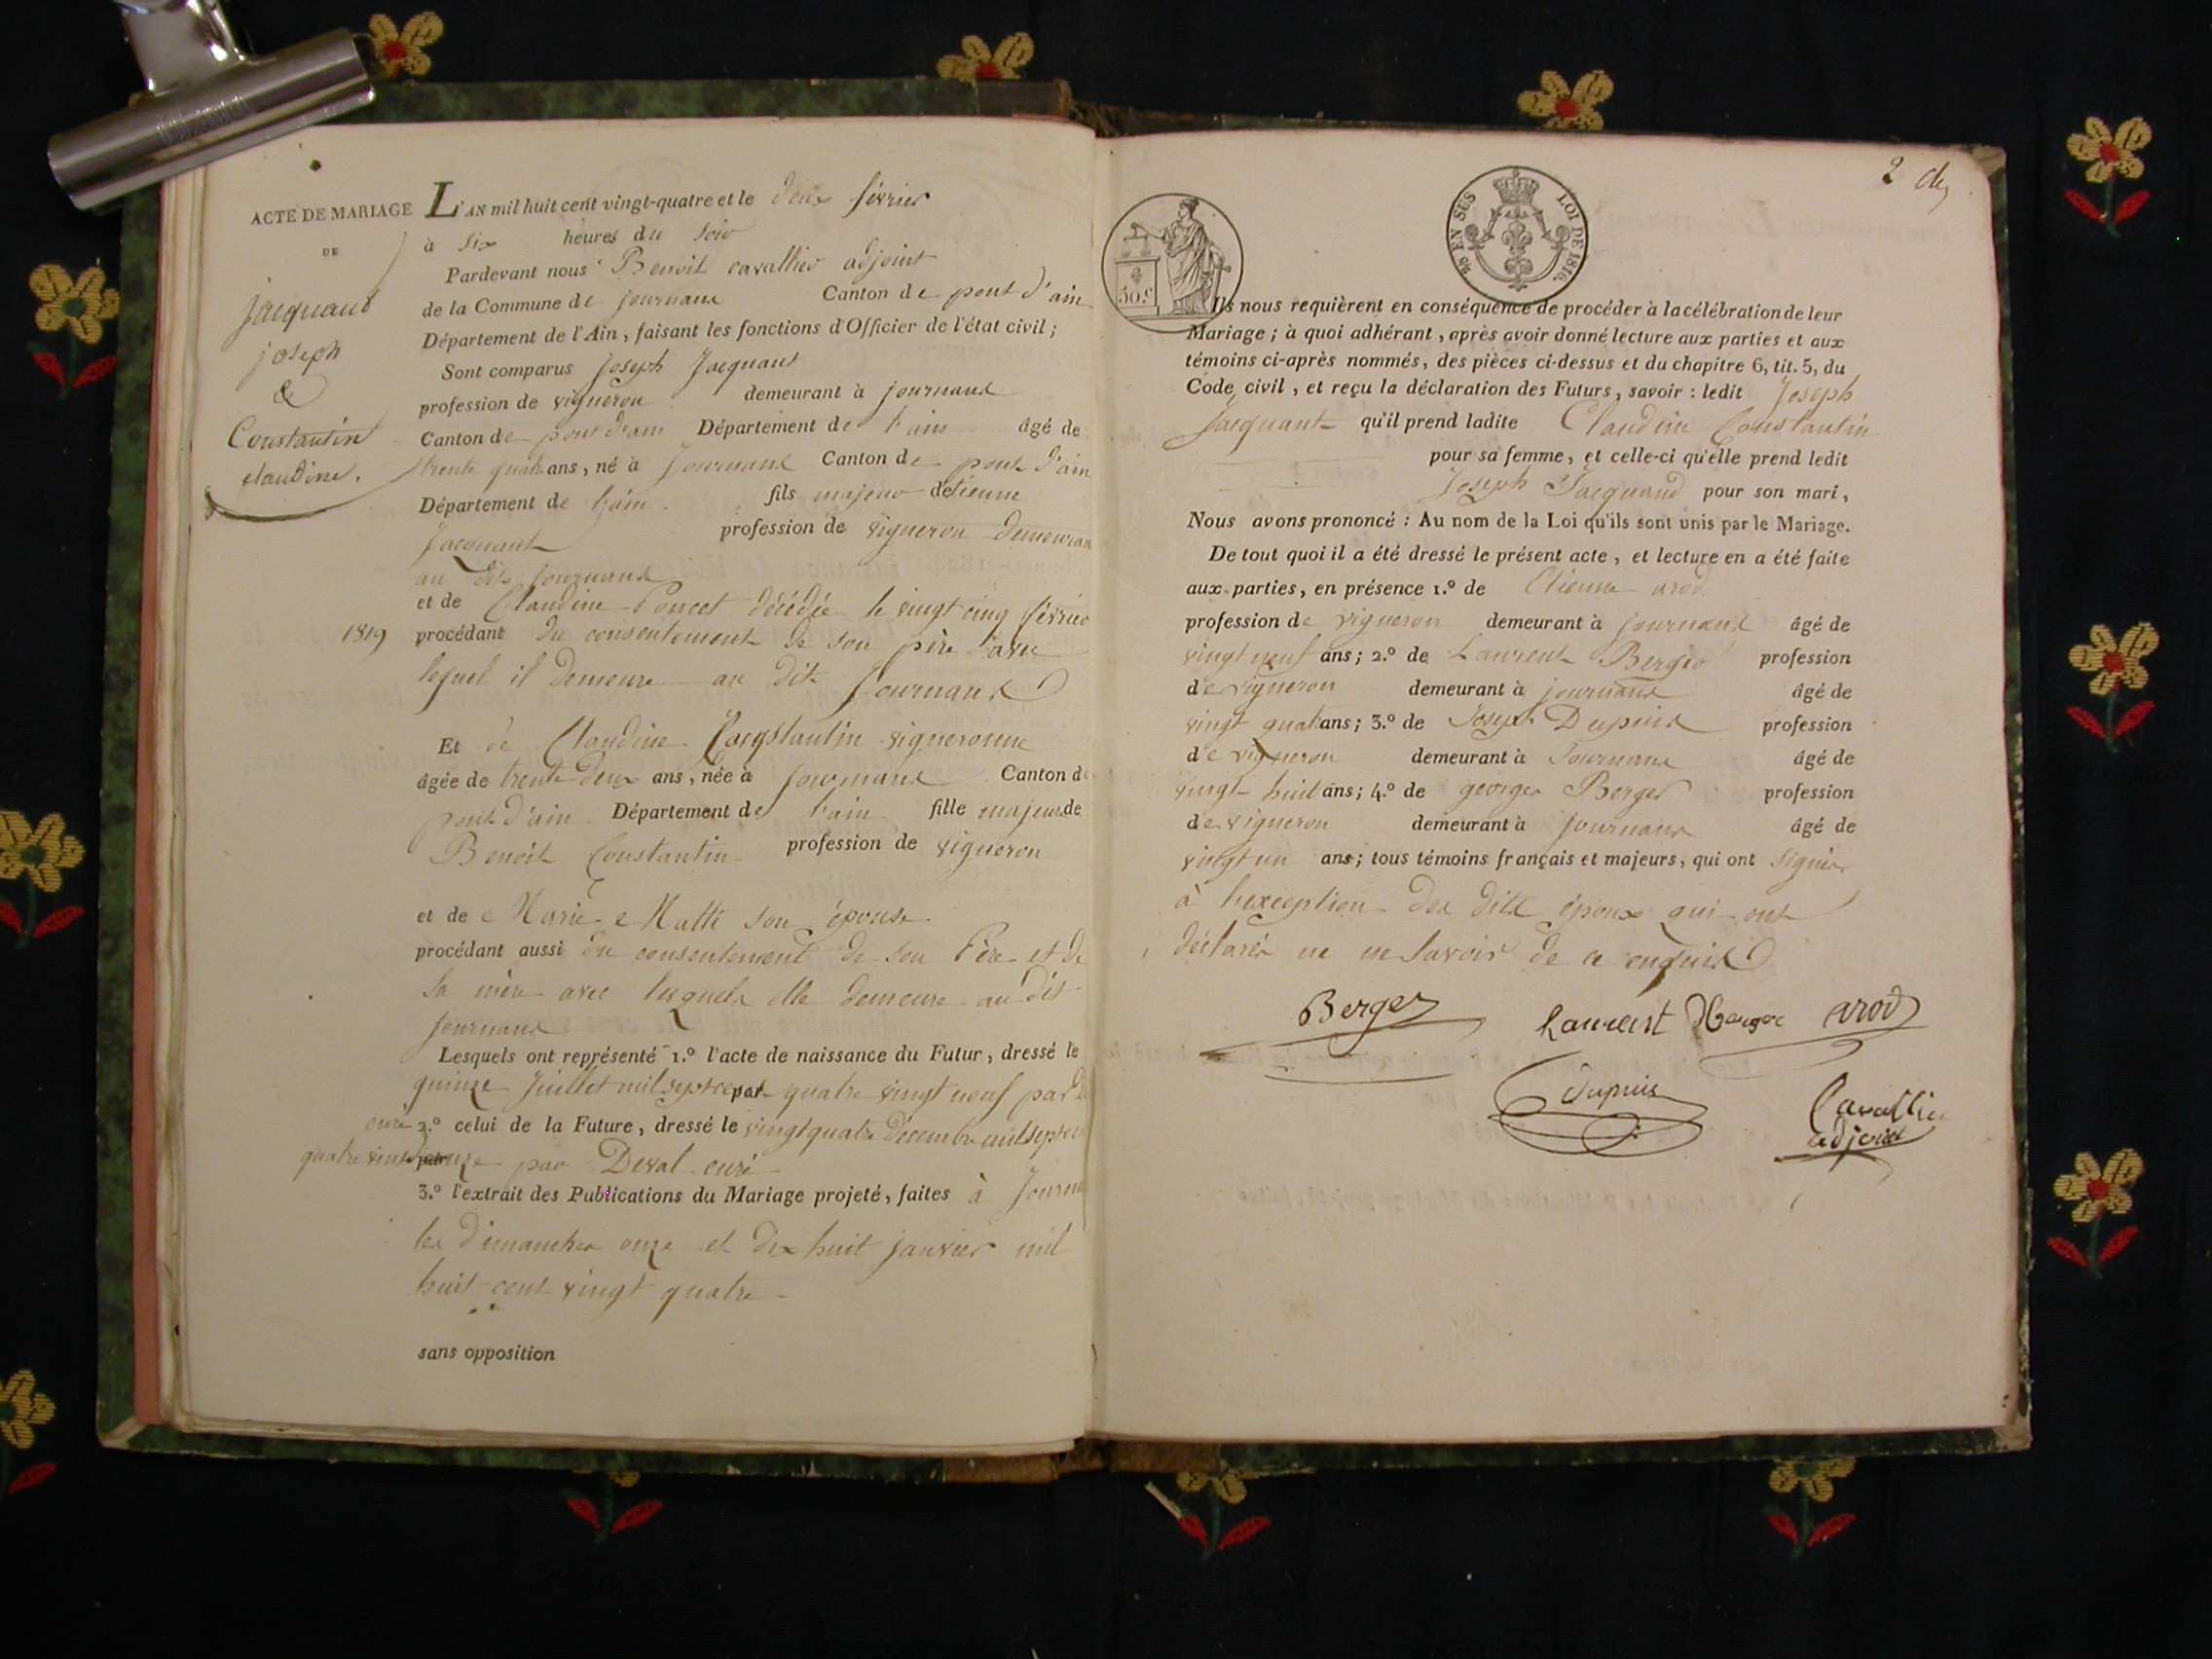 ACTE DE MARIAGE
DE
jacquand
joseph
&
Constantin
claudine.
1819
L'AN mil huit cent vingt-quatre et le deux février
à six heures du soir
Pardevant nous Benoit cavallier adjoint
de la Commune de journans Canton de pont d'ain
Département de l'Ain, faisant les fonctions d'Officier de l'état civil;
Sont comparus Joseph Jacquant
profession de vigneron demeurant à journans
Canton de pont d'ain Département de l'ain âgé de
trente quatre ans, né à Journans Canton de pont d'ain
Département de l'ain. fils majeur detienne
Jacquant profession de vigneron demeuran
au dit journans
et de Claudine Poncet décédée le vingt cinq février
procédant du consentement de son père avec
lequel il demeure au dit Journans
Et de Claudine Constantin vigneronne
âgée de trente deux ans, née à Journans Canton de
pont d'ain Département de l'ain fille majeure de
Benoit Constantin profession de vigneron
et de Marie Matti son épouse
procédant aussi du consentement de son Père et de
sa mère avec lesquels elle demeure au dit
Journans
Lesquels ont représenté 1.º l'acte de naissance du Futur, dressé le
quinze Juillet mil sept cent par quatre vingt neuf par
curé 2.º celui de la Future, dressé le vingt quatre décembre mil sept
quatre vingt onze par Deval curé
3.º l'extrait des Publications du Mariage projeté, faites à Journans
les dimanches onze et dix huit janvier mil
huit cent vingt quatre
sans opposition
2 de
EN SUS LOI DE 1816.
50.c
Ils nous requièrent en conséquence de procéder à la célébration de leur
Mariage; à quoi adhérant, après avoir donné lecture aux parties et aux
témoins ci-après nommés, des pièces ci-dessus et du chapitre 6, tit. 5, du
Code civil, et reçu la déclaration des Futurs, savoir : ledit Joseph
Jacquant qu'il prend ladite Claudine Constantin
pour sa femme, et celle-ci qu'elle prend ledit
Joseph Jacquand pour son mari,
Nous avons prononcé : Au nom de la Loi qu'ils sont unis par le Mariage.
De tout quoi il a été dressé le présent acte, et lecture en a été faite
aux parties, en présence 1.º de Etienne arod
profession de vigneron demeurant à journans âgé de
vingt neuf ans; 2.º de Laurent Berger profession
de vigneron demeurant à journans âgé de
vingt quatre ans; 3.º de Joseph Dupuis profession
de vigneron demeurant à Journans âgé de
vingt huit ans; 4.º de george Berger profession
de vigneron demeurant à journans âgé de
vingt un ans; tous témoins français et majeurs, qui ont signés
à l'exception des dits époux qui ont
déclarés ne savoir de ce enquis
Berger Laurent Berger arod
dupuis Cavallier
adjoint